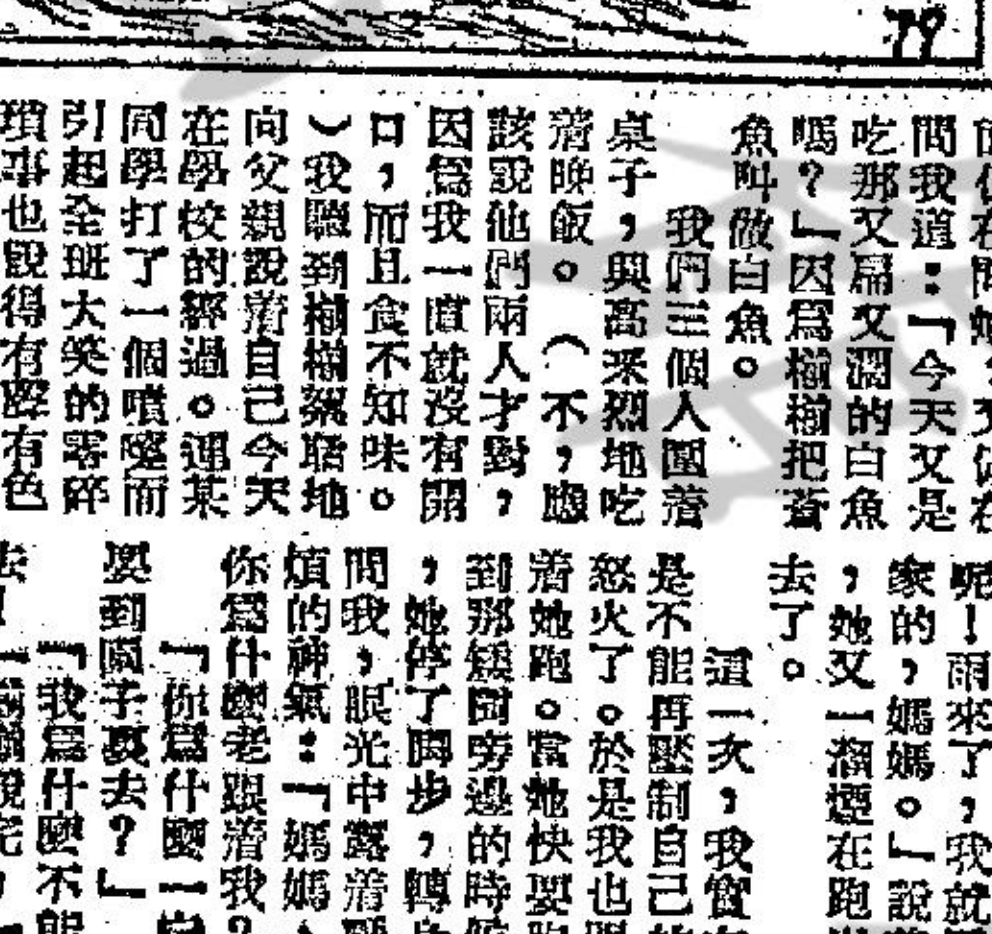 79
問我道：「今天又是
吃那又扁又濶的白魚
嗎？」因爲榴榴把蒼
魚叫做白魚。
我們三個人圍着
桌子，興高采烈地吃
着晚飯。（不，應
該說他們兩人才對，
因爲我一直就沒有開
口，而且食不知味。
）我聽到榴榴絮聒地
向父親說着自己今天
在學校的經過。連某
同學打了一個噴嚏而
引起全班大笑的零碎
瑣事也說得有聲有色
呢！雨來了，我就
家的，媽媽。」說
，她又一溜煙在跑
去了。
這一次，我實
是不能再壓制自己
怒火了。於是我也
着她跑。當她快要
到那矮閘旁邊的時
，她停了脚步，轉
問我，眼光中露着
煩的神氣：「媽媽
你爲什麼老跟着我？
「你爲什麼一
要到園子裏去？」
「我爲什麼不能
去